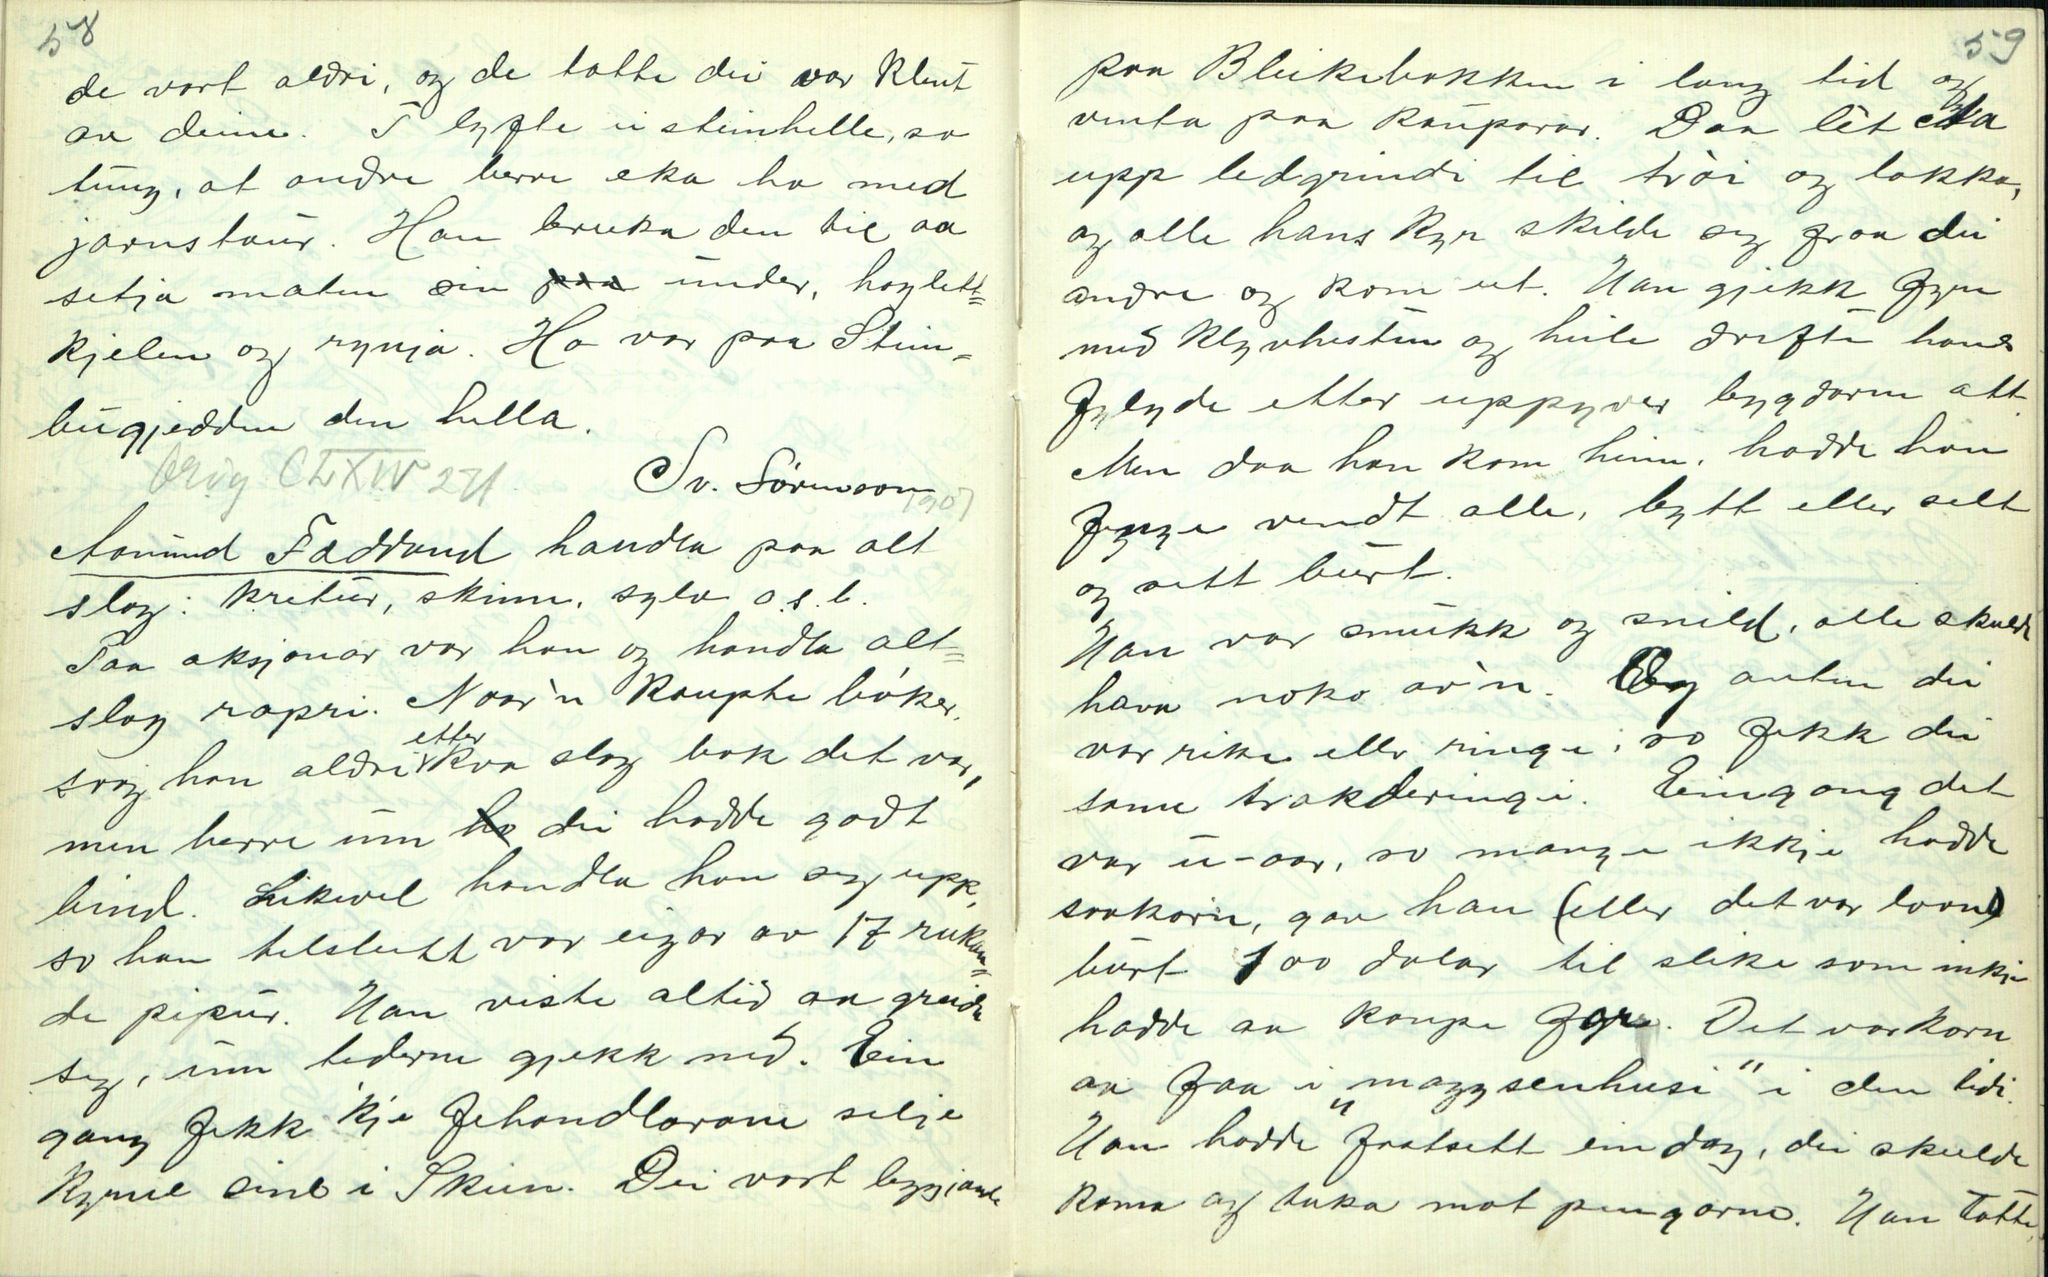 58
de vart aldri, og de totte dei var klent
av deim. I lyfte ei steinhelle, so
tung, at andre berre eka ho med
jarnstaur. Han bruka den til aa
setja maten sin paa under, høglett=
kjelen og rynja. Ho var paa Stim=
bugjedden den hella.
Sv. Sørensson
Orig CLXIV 271
1907
Aamund Faddland handla paa alt
slag: kretur, skinn, sylv o.s.b.
Paa aksjonar var han og handla alt=
slag rapri. Naar'n kaupte bøker,
saag han aldri etter kva slag bok det var,
men berre um ho dei hadde godt
bind. Likevel handla han seg upp,
so han tilslutt var eigar av 17 rukan=
de pipur. Han viste altid aa greide
seg, um tiderne gjekk ned. Ein
gang fekk 'kje fehandlarane selje
kyrne sine i Skien. Dei vart liggjande
59
paa Bleikebakken i lang tid og
venta paa kauparar. Daa lèt Aa
upp ledgrindi til trøi og lokka,
og alle hans kyr skilde seg fraa dei
andre og kom ut. Han gjekk fyre
med klyvhesten og heile drifti hans
fylgde etter uppyver bygdarne att.
Men daa han kom heim, hadde han
fenge vendt alle, bytt eller selt
og sett burt.
Han var smukk og snild, alle skulde
hava noko av'n. Og anten dei
var rike eller ringe, so fekk dei
same trakteringi. Eingong det
var u-aar, so mange ikkje hadde
saakorn, gav han (eller det var laan)
burt 100 dalar til slike som inkje
hadde aa kaupe for. Det var korn
aa faa i "magysenhusi" i den tidi.
Han hadde fratsett ein dag, dei skulde
koma og taka mot pengarne. Han totte,